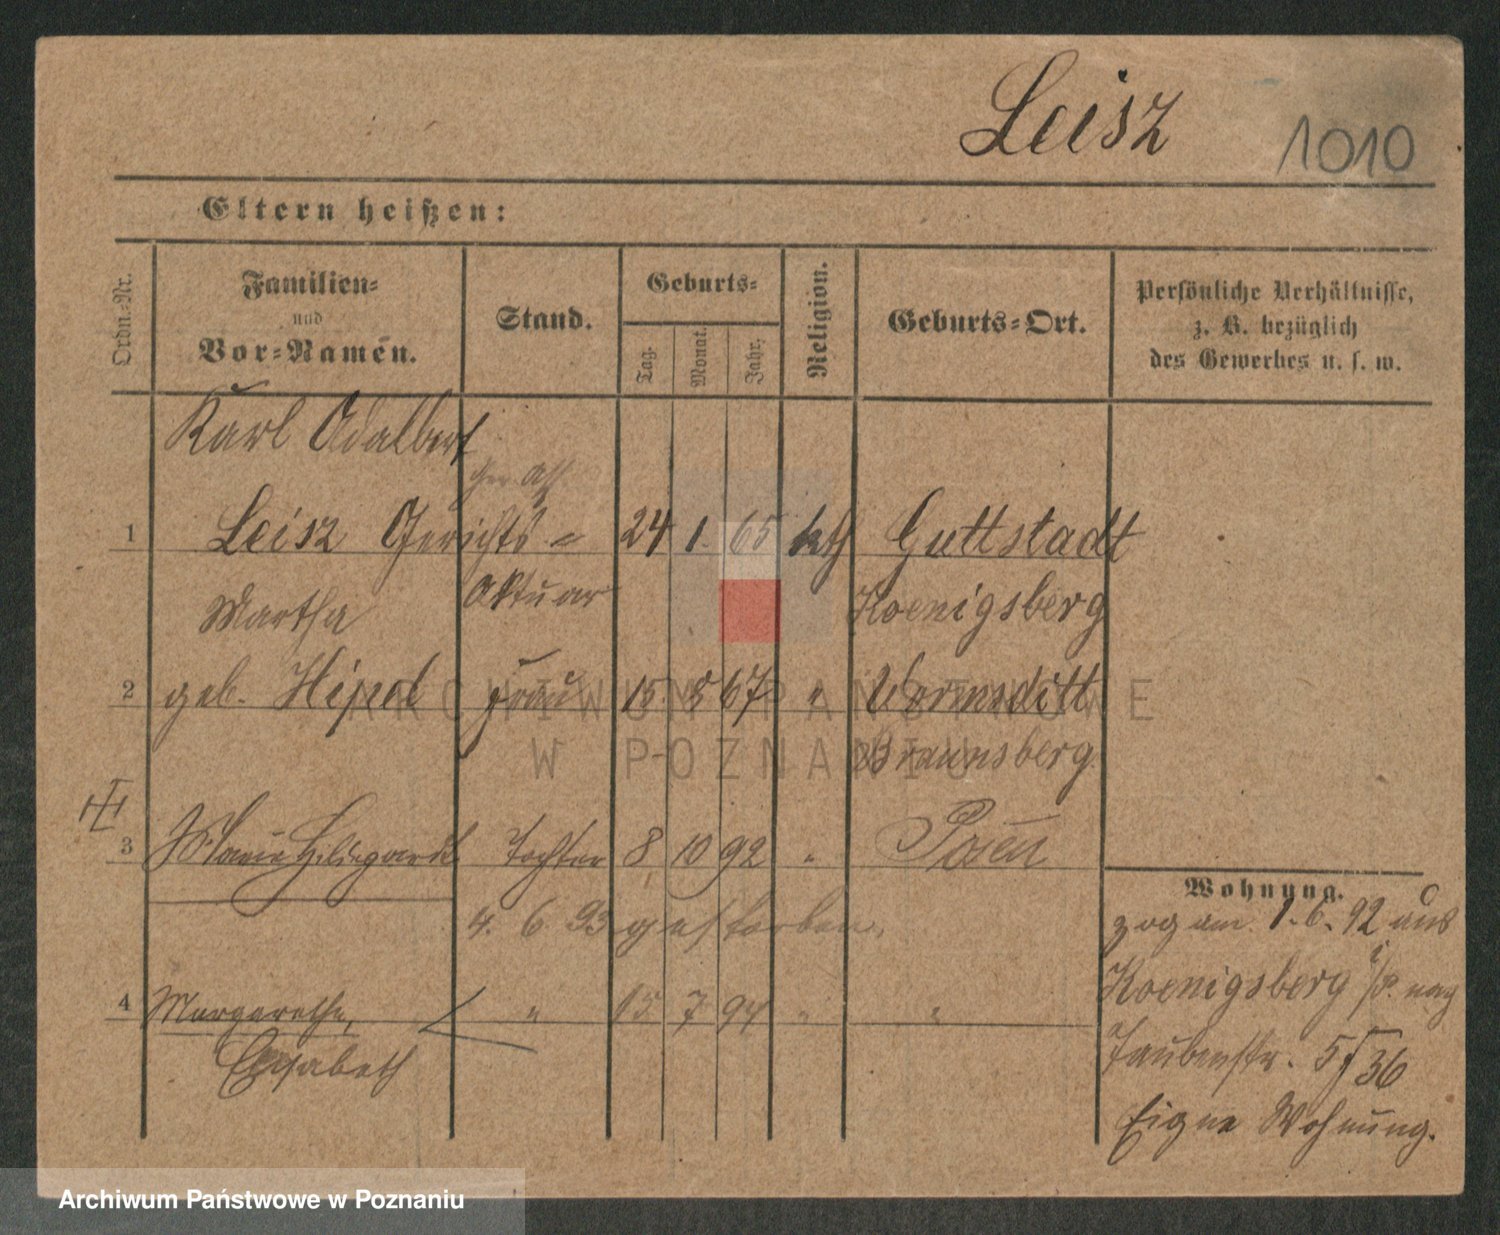 Leisz 1010
Eltern heißen:
Ordn.-Nr.
Familien-
und
Vor-Namen.
Stand.
Geburts-
Tag.
Monat.
Jahr.
Religion.
Geburts-Ort.
Persönliche Verhältnisse,
z. B. bezüglich
des Gewerbes u. s. w.
Karl Adalbert
Ger Ass
1 Leisz Gerichts- 24 1. 65 kth Guttstadt
Martha Aktuar Koenigsberg
2 geb. Hipel Frau 15 8 67 " Wormditt
Braunsberg
3 Marie Hildegardt Tochter 8 10 92 " Posen
4. 6. 93 gestorben.
4 Margarethe, " 15 7 94 " "
Elisabeth
Wohnung.
zog am 1. 6. 92 aus
Koenigsberg i/P. nach
Taubenstr. 5 / 36
Eigne Wohnung.
ARCHIWUM PAŃSTWOWE
W POZNANIU
Archiwum Państwowe w Poznaniu